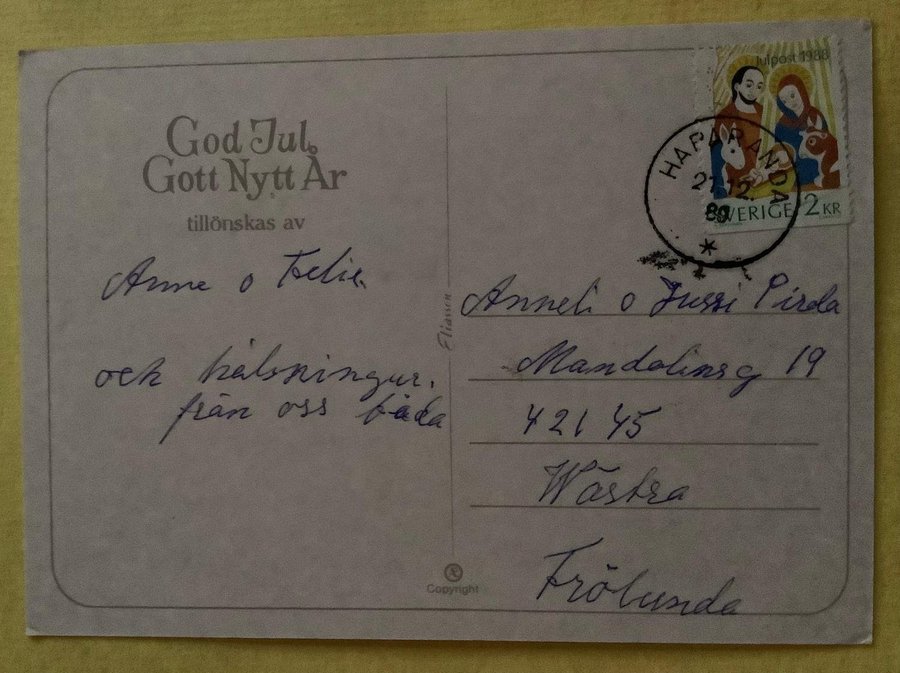 God Jul,
Gott Nytt År
tillönskas av
Anne o
och hälsningur.
från oss båda
Julpost 1988
SVERIGE 2 KR
HAPARANDA
21.12.
Anneli o Jussi Pirda
Mandolinsg 19
421 45
Wästra
Frölunda
Copyright